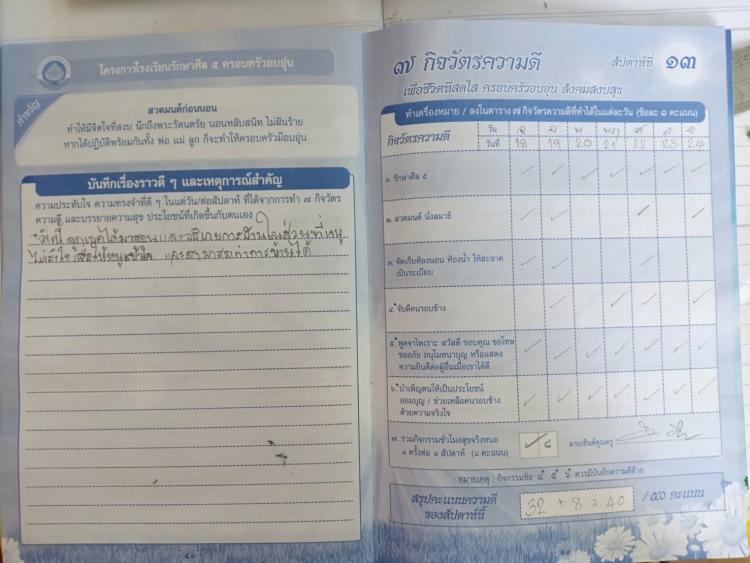 โครงการโรงเรียนรักษาศีล ๕ ครอบครัวอบอุ่น
คำขวัญ
สวดมนต์ก่อนนอน
ทำให้มีจิตใจที่สงบ นึกถึงพระรัตนตรัย นอนหลับสนิท ไม่ฝันร้าย
หากได้ปฏิบัติพร้อมกันทั้ง พ่อ แม่ ลูก ก็จะทำให้ครอบครัวมีอบอุ่น
บันทึกเรื่องราวดี ๆ และเหตุการณ์สำคัญ
ความประทับใจ ความทรงจำที่ดี ๆ ในแต่วัน/ต่อสัปดาห์ ที่ได้จากการทำ ๗ กิจวัตร
ความดี และบรรยายความสุข ประโยชน์ที่เกิดขึ้นกับตนเอง
วันนี้ ได้มาสอนและอธิบายการบ้านในส่วนที่หนู
ไม่เข้าใจ ให้หนูเข้าใจ และสามารถทำการบ้านได้
๔๐
๗ กิจวัตรความดี
สัปดาห์ที่ ๑๓
เพื่อชีวิตที่สดใส ครอบครัวอบอุ่น สังคมสงบสุข
ทำเครื่องหมาย / ลงในตาราง ๗ กิจวัตรความดีที่ทำได้ในแต่ละวัน (ข้อละ ๑ คะแนน)
กิจวัตรความดี
วัน จ อ พ พฤ ศ ส อ
วันที่ 18 19 20 21 22 23 24
๑. รักษาศีล ๕
๒. สวดมนต์ นั่งสมาธิ
๓. จัดเก็บห้องนอน ห้องน้ำ ให้สะอาด
เป็นระเบียบ
๔. จับดีคนรอบข้าง
๕. พูดจาไพเราะ สวัสดี ขอบคุณ ขอโทษ
ขออภัย อนุโมทนาบุญ หรือแสดง
ความยินดีต่อผู้อื่นเมื่อเขาได้ดี
๖. บำเพ็ญตนให้เป็นประโยชน์
ยอมบุญ / ช่วยเหลือคนรอบข้าง
ด้วยความจริงใจ
๗. ร่วมกิจกรรมชั่วโมงสุขจริงหนอ
๑ ครั้งต่อ ๑ สัปดาห์ (๘ คะแนน)
๘
ลายเซ็นต์คุณครู
หมายเหตุ : กิจกรรมข้อ ๔ ๕ ๖ ควรมีบันทึกความดีด้วย
สรุปคะแนนความดี
ของสัปดาห์นี้
32 + 8 = 40 / ๕๐ คะแนน
๔๑